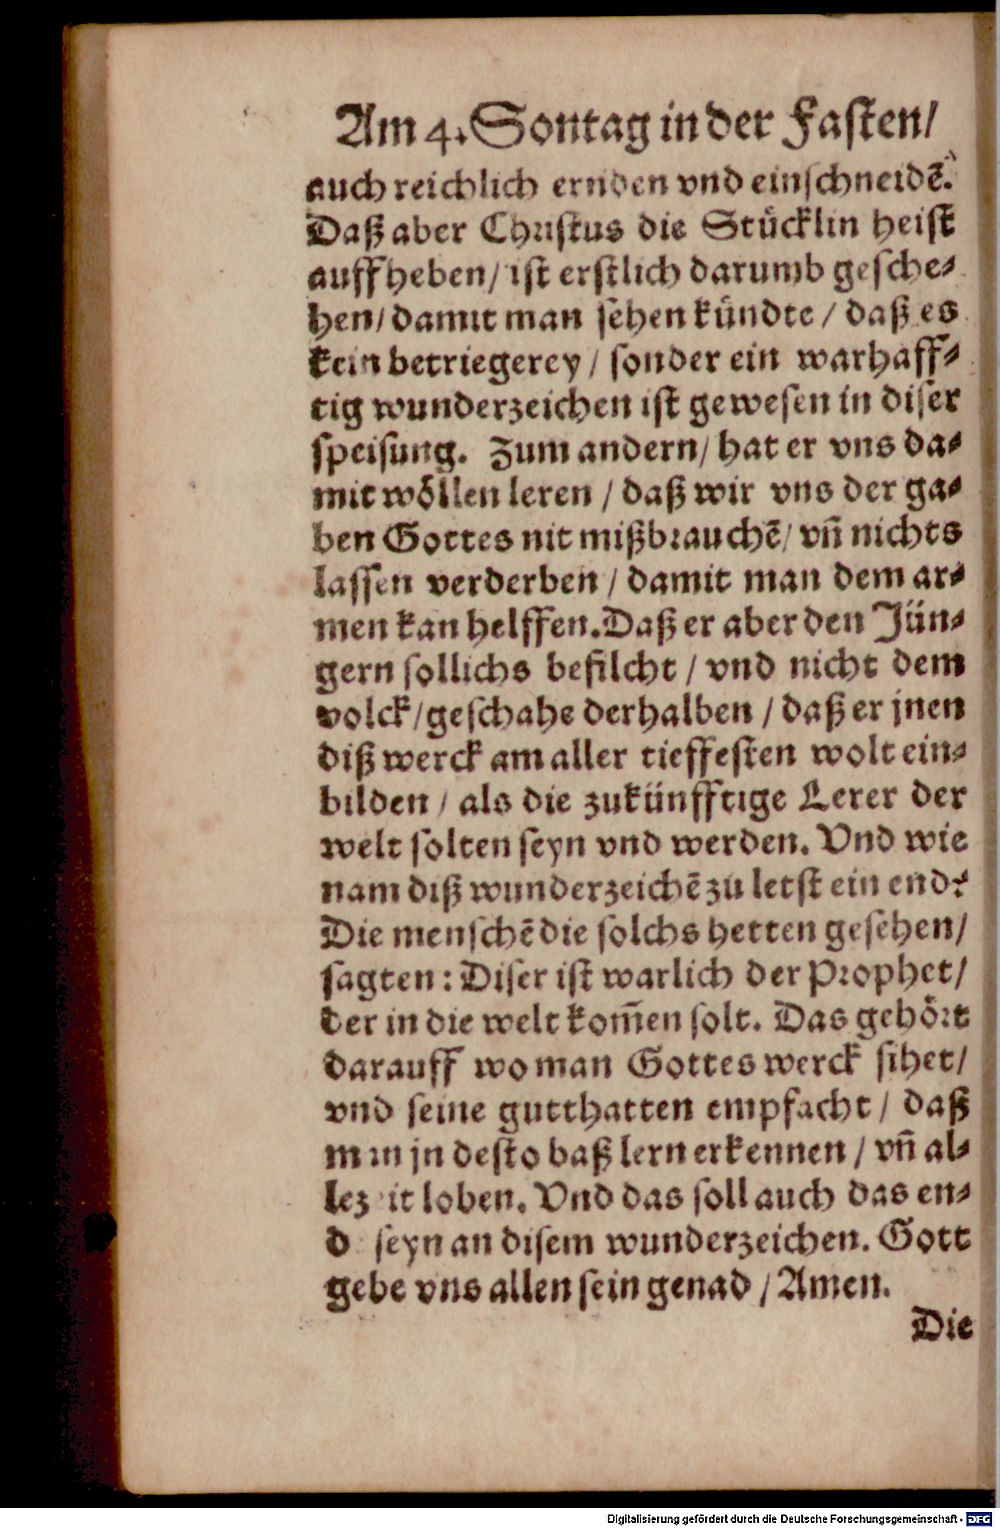 Am 4. Sontag in der Fasten/
auch reichlich ernden vnd einschneidē.
Daß aber Christus die Stücklin heist
auffheben/ ist erstlich darumb gesche-
hen/ damit man sehen kündte / daß es
kein betriegerey / sonder ein warhaff-
tig wunderzeichen ist gewesen in diser
speisung. Zum andern/ hat er vns da-
mit wöllen leren / daß wir vns der ga-
ben Gottes nit mißbrauchē/ vñ nichts
lassen verderben / damit man dem ar-
men kan helffen. Daß er aber den Jün-
gern sollichs befilcht / vnd nicht dem
volck/ geschahe derhalben / daß er jnen
diß werck am aller tieffesten wolt ein-
bilden / als die zukünfftige Lerer der
welt solten seyn vnd werden. Vnd wie
nam diß wunderzeichē zu letst ein end?
Die menschē die solchs hetten gesehen/
sagten: Diser ist warlich der Prophet/
der in die welt kom̃en solt. Das gehört
darauff wo man Gottes werck sihet/
vnd seine gutthatten empfacht / daß
man jn desto baß lern erkennen / vñ al-
lezeit loben. Vnd das soll auch das en-
d seyn an disem wunderzeichen. Gott
gebe vns allen sein genad / Amen.
Die
Digitalisierung gefördert durch die Deutsche Forschungsgemeinschaft - DFG